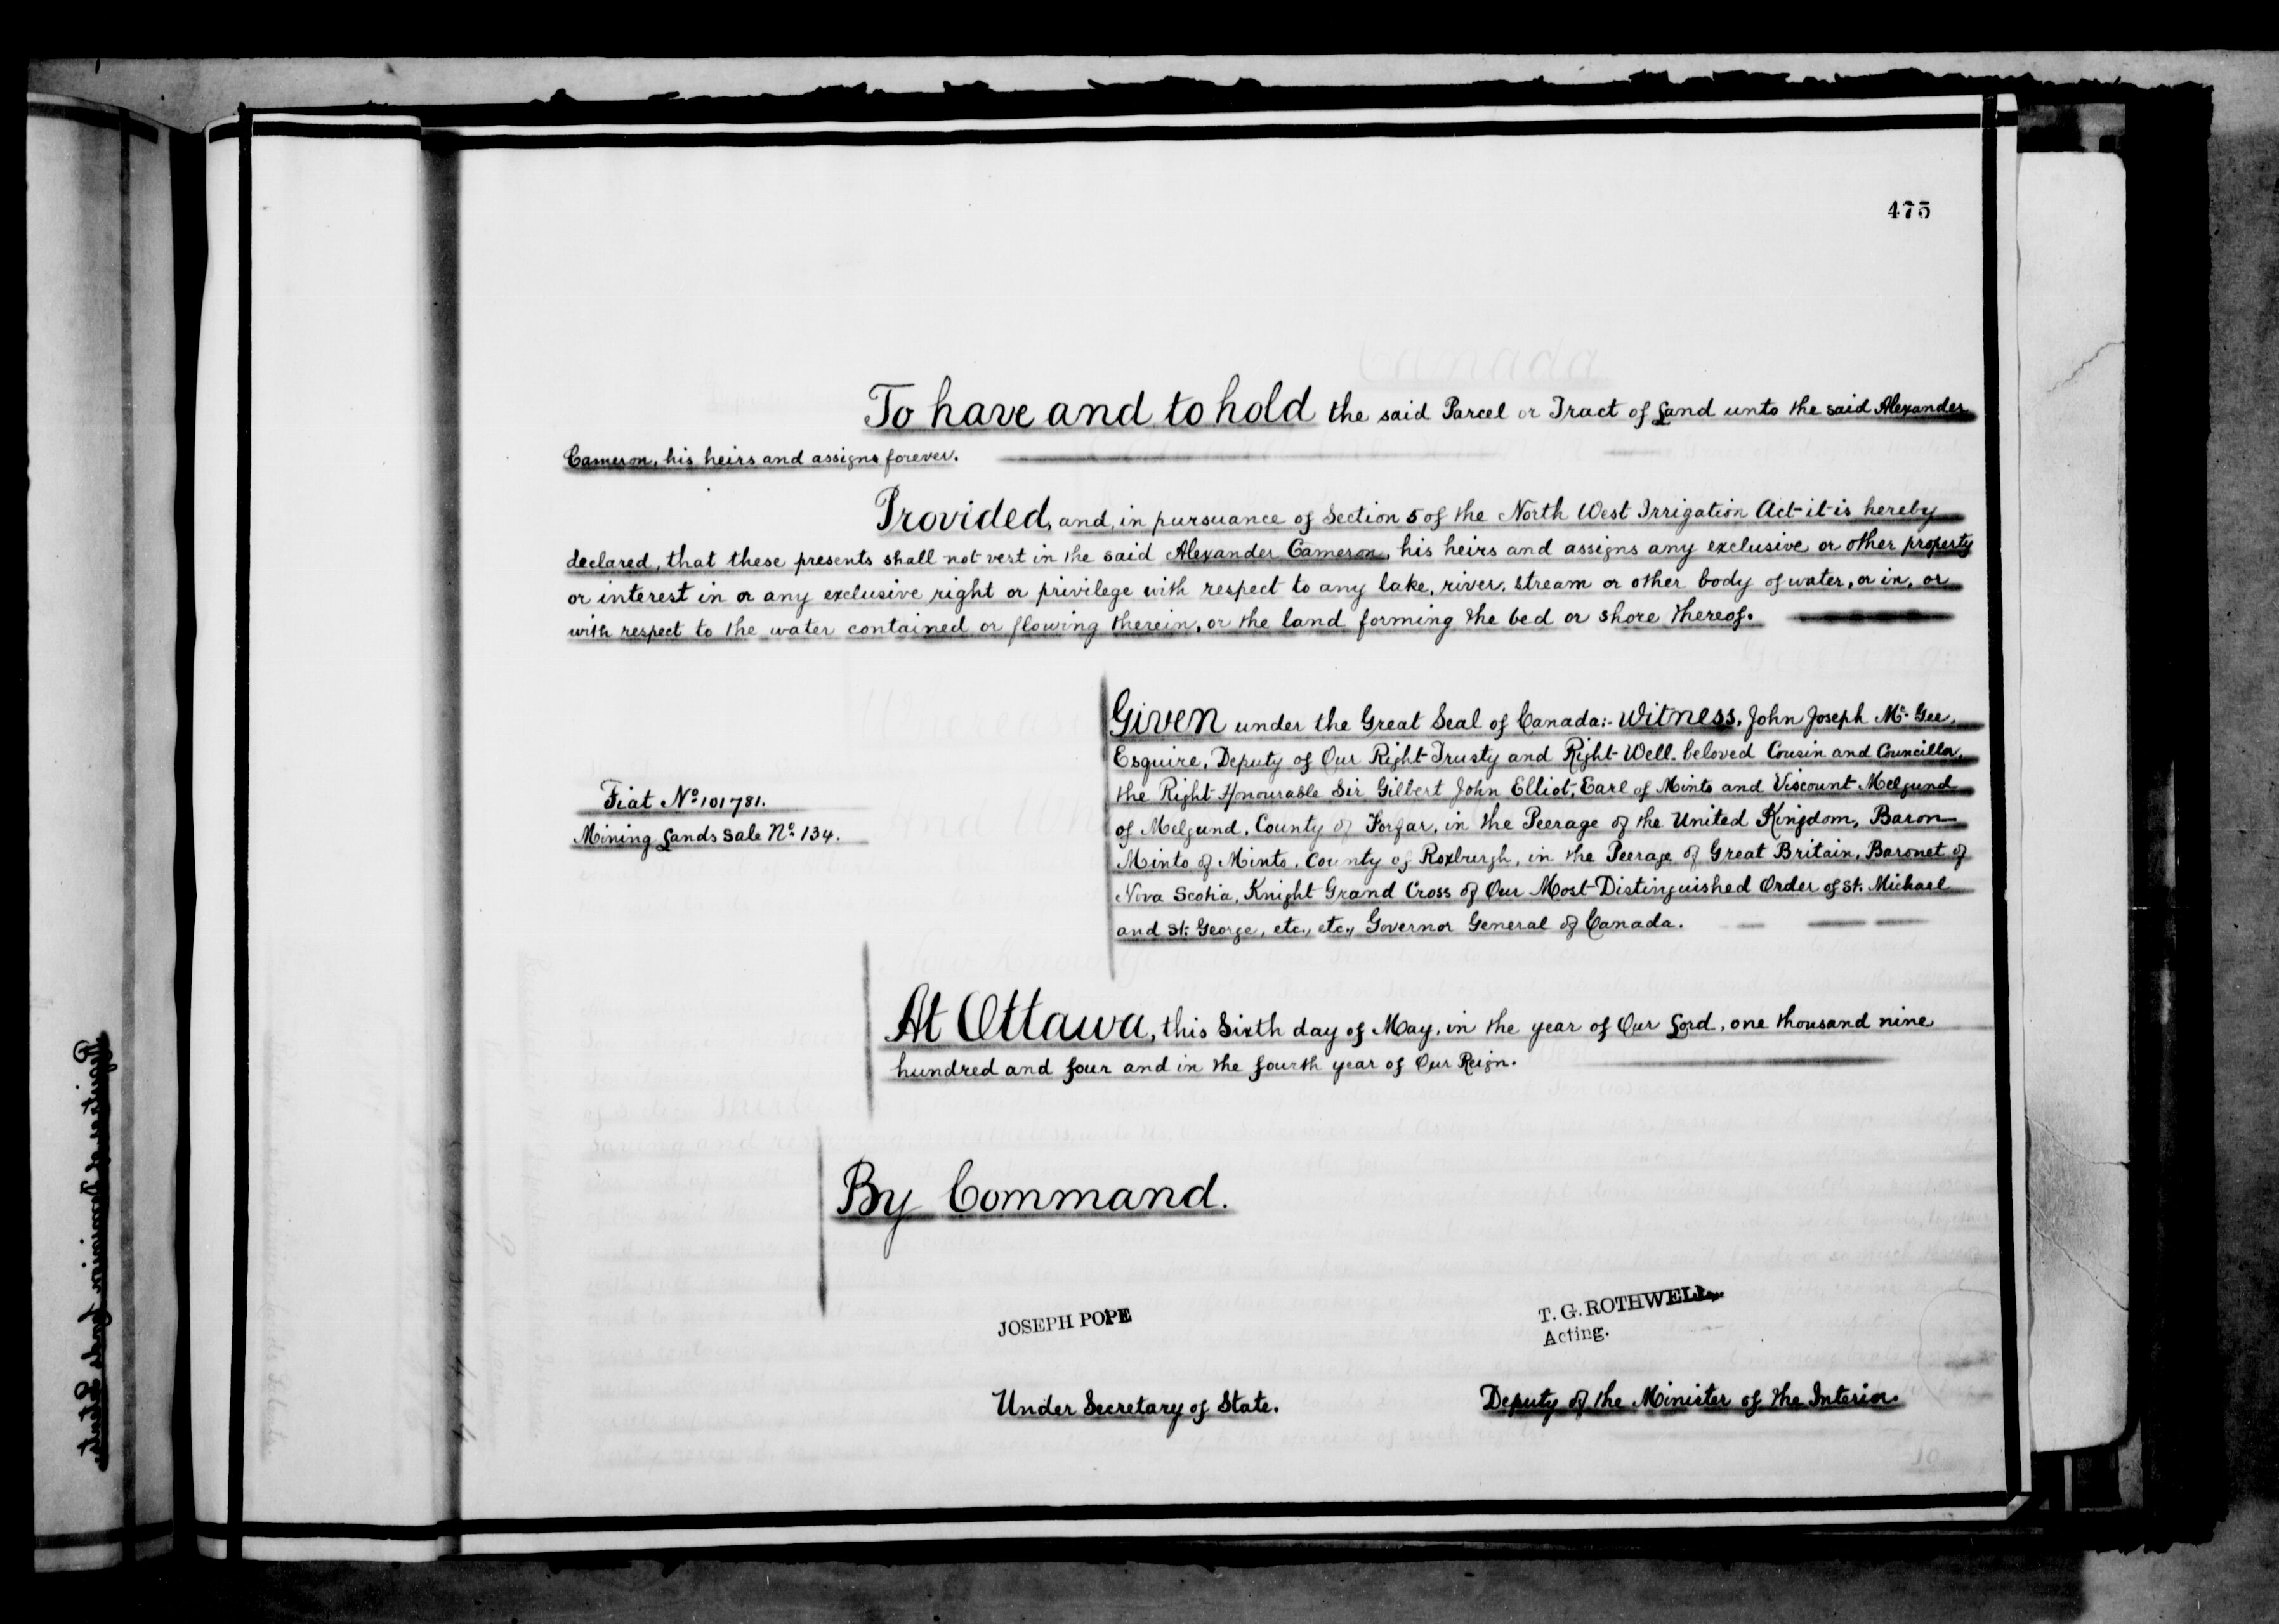 475
To have and to hold the said Parcel or Tract of Land unto the said Alexander
Cameron, his heirs and assigns forever.
Provided, and, in pursuance of Section 5 of the North West Irrigation Act it is hereby
declared, that these presents shall not vest in the said Alexander Cameron, his heirs and assigns any exclusive or other property
or interest in or any exclusive right or privilege with respect to any lake, river, stream or other body of water, or in, or
with respect to the water contained or flowing therein, or the land forming the bed or shore thereof.
Given under the Great Seal of Canada:- Witness, John Joseph Mc Gee,
Esquire, Deputy of Our Right Trusty and Right Well-beloved Cousin and Councillor,
the Right Honourable Sir Gilbert John Elliot, Earl of Minto and Viscount Melgund
of Melgund, County of Forfar, in the Peerage of the United Kingdom, Baron
Minto of Minto, County of Roxburgh, in the Peerage of Great Britain, Baronet of
Nova Scotia, Knight Grand Cross of Our Most Distinguished Order of St. Michael
and St. George, etc., etc., Governor General of Canada.
Fiat No 101781.
Mining Lands Sale No 134.
At Ottawa, this Sixth day of May, in the year of Our Lord, one thousand nine
hundred and four and in the fourth year of Our Reign.
By Command.
JOSEPH POPE
Under Secretary of State.
T. G. ROTHWELL,
Acting.
Deputy of the Minister of the Interior.